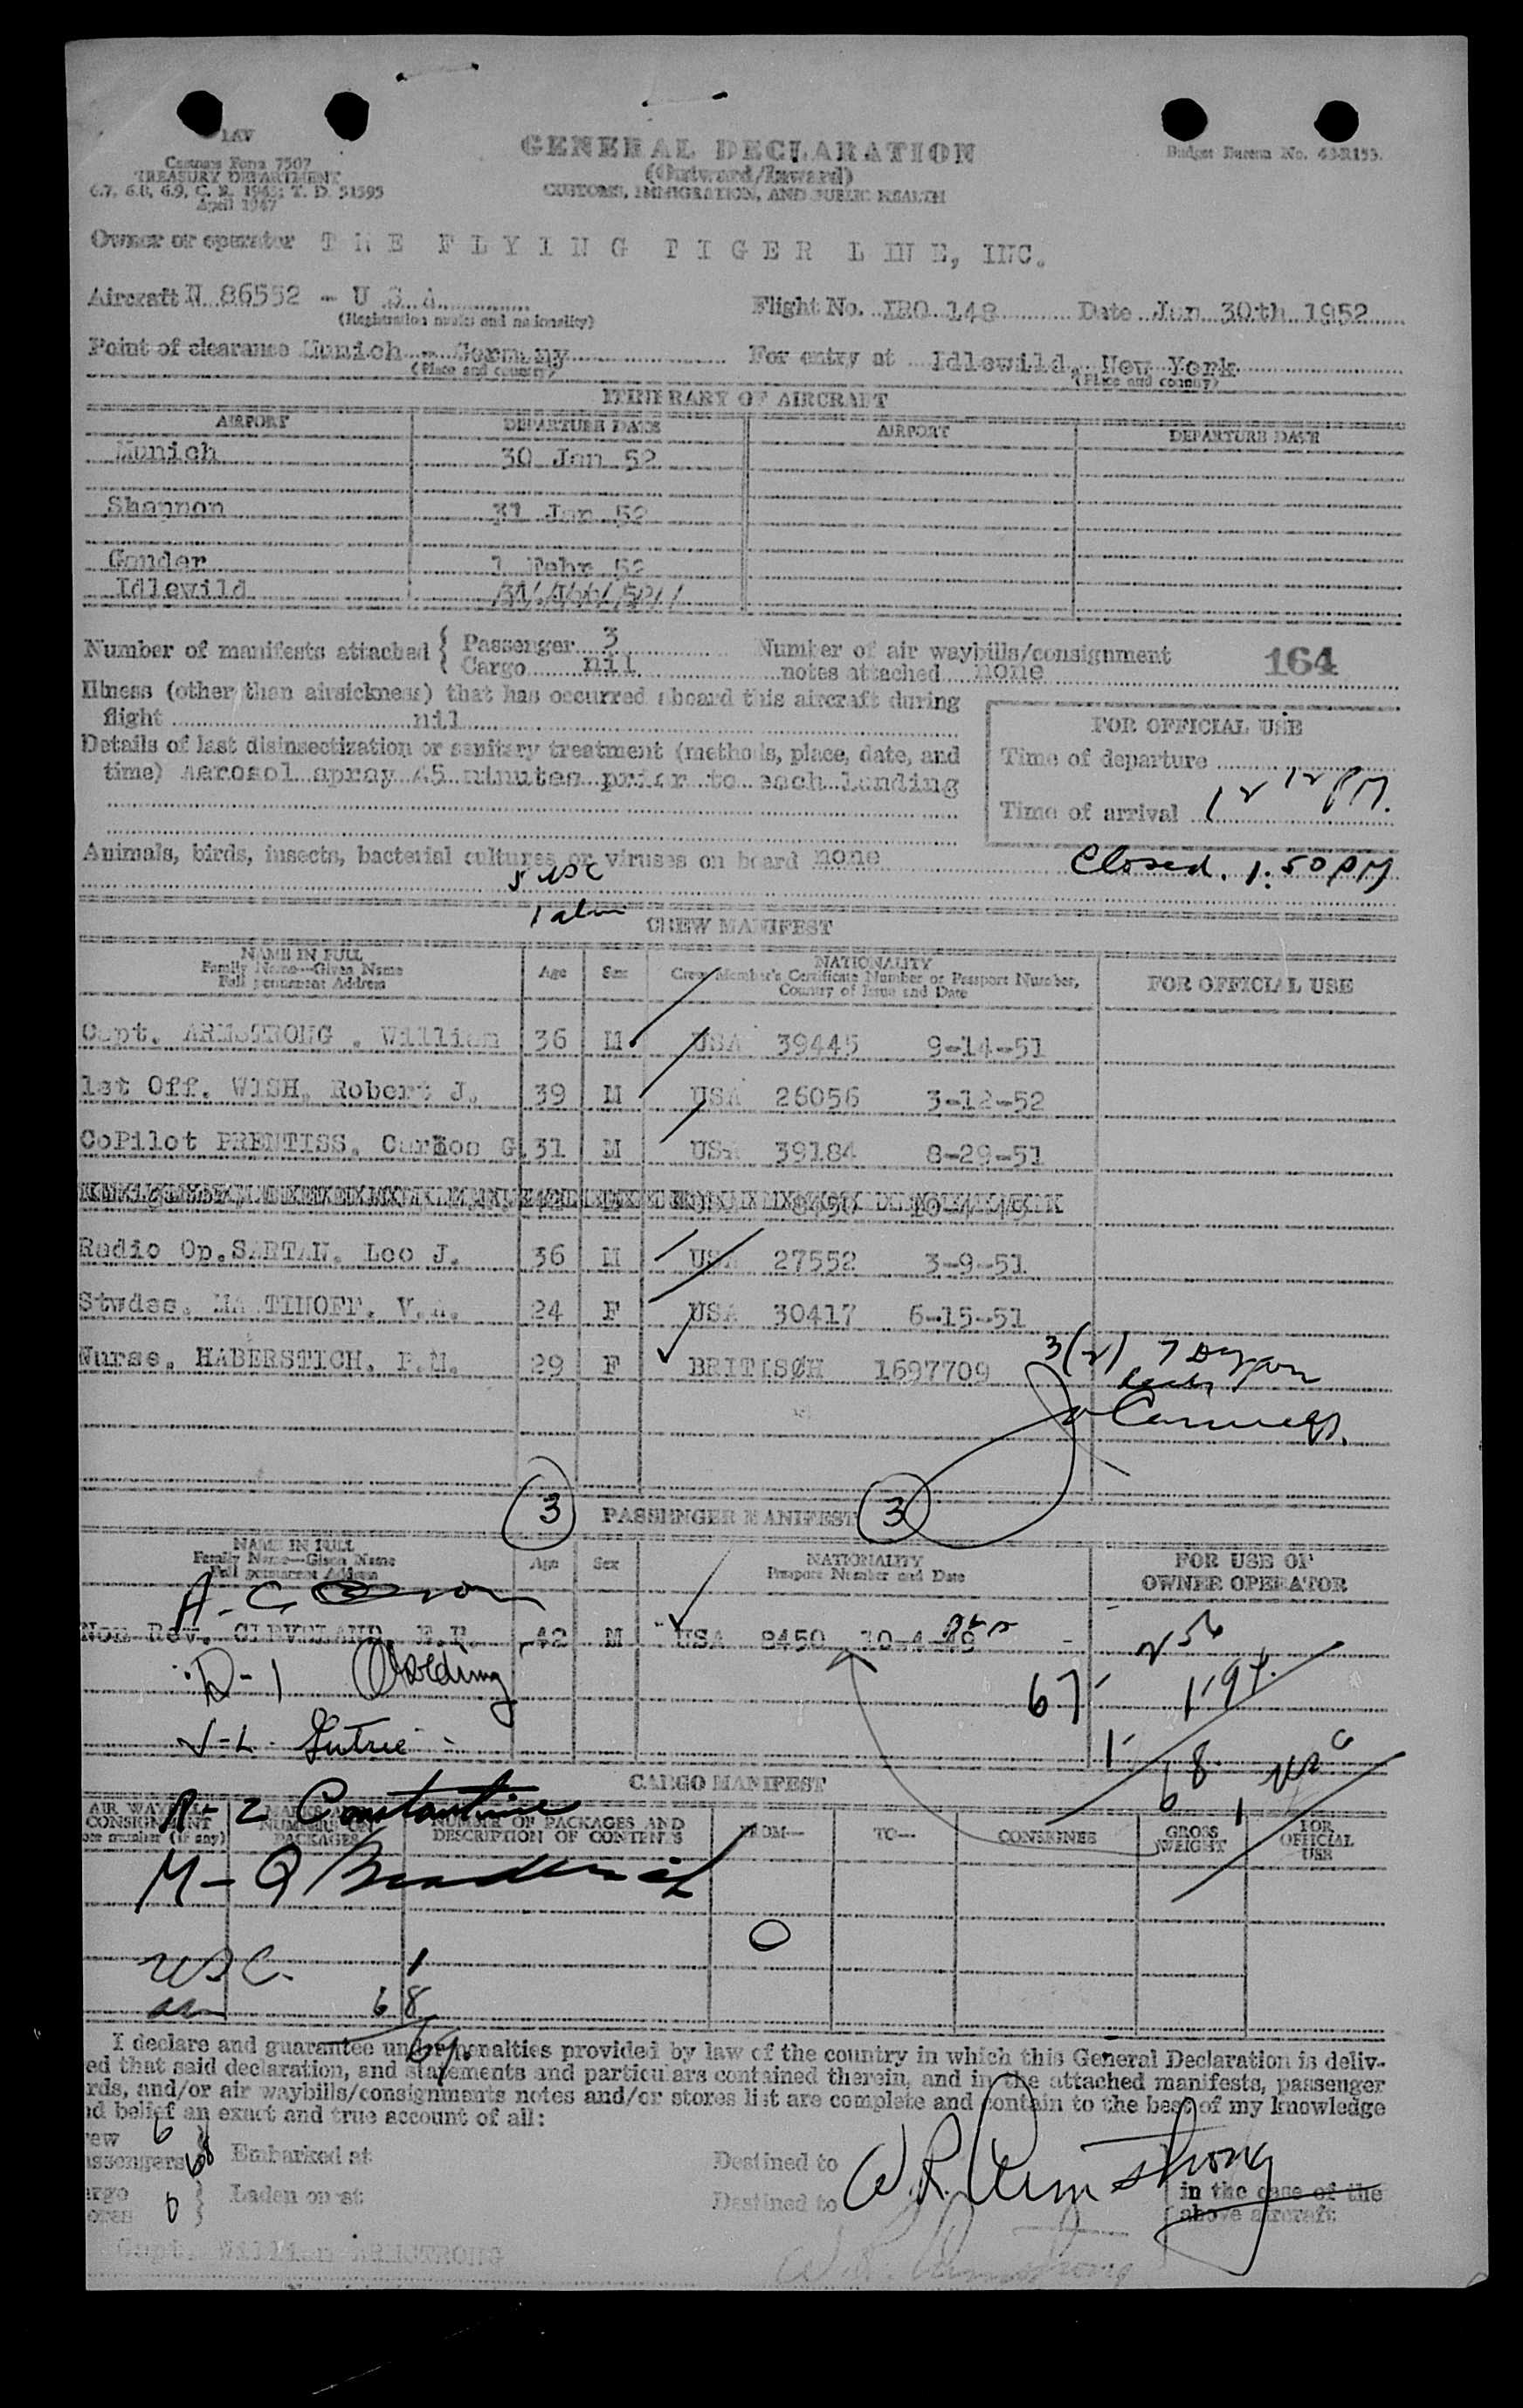 IAV
Customs Form 7507
TREASURY DEPARTMENT
6.7, 6.8, 6.9, C. R. 1943; T. D. 51595
April 1947
GENERAL DECLARATION
(Outward/Inward)
CUSTOMS, IMMIGRATION, AND PUBLIC HEALTH
Budget Bureau No. 43-R153.
Owner or operator THE FLYING TIGER LINE, INC.
Aircraft N 86552 - U S A
(Registration marks and nationality)
Flight No. IRO 148 Date Jan 30th 1952
Point of clearance Munich - Germany
(Place and country)
For entry at Idlewild, New York
(Place and country)
ITINERARY OF AIRCRAFT
AIRPORT DEPARTURE DATE AIRPORT DEPARTURE DATE
Munich 30 Jan 52
Shannon 31 Jan 52
Gander 1 Febr 52
Idlewild
Number of manifests attached { Passenger 3
Cargo nil
Number of air waybills/consignment
notes attached none
164
Illness (other than airsickness) that has occurred aboard this aircraft during
flight nil
Details of last disinsectization or sanitary treatment (methods, place, date, and
time) Aerosol spray 45 minutes prior to each landing
FOR OFFICIAL USE
Time of departure
Time of arrival 12 12 PM.
Animals, birds, insects, bacterial cultures or viruses on board none
Closed. 1:50 PM
5 USC
1 alien
CREW MANIFEST
NAME IN FULL
Family Name—Given Name
Full permanent Address
Age Sex
NATIONALITY
Crew Member's Certificate Number or Passport Number,
Country of Issue and Date
FOR OFFICIAL USE
Capt. ARMSTRONG . William 36 M USA 39445 9-14-51
1st Off. WISH, Robert J. 39 M USA 26056 3-12-52
CoPilot PRENTISS, Carlos G. 31 M USA 39184 8-29-51
Radio Op. SARTAN, Leo J. 36 M USA 27552 3-9-51
Stwdss. MARTINOFF, V.A. 24 F USA 30417 6-15-51
Nurse, HABERSTICH, F.M. 29 F BRITISH 1697709
3(2) 7 Days
3 PASSENGER MANIFEST 3
NAME IN FULL
Family Name—Given Name
Full permanent Address
Age Sex
NATIONALITY
Passport Number and Date
FOR USE OF
OWNER OPERATOR
A-C
Non Rev. CLEVELAND, E.E. 42 M USA 8450 10-4-49
D-1
67
V-L
1 68
CARGO MANIFEST
R-Z Constantine
AIR WAYBILL
CONSIGNMENT
note number (if any)
MARKS AND
NUMBERS ON
PACKAGES
NUMBER OF PACKAGES AND
DESCRIPTION OF CONTENTS
FROM—
TO—
CONSIGNEE
GROSS
WEIGHT
FOR
OFFICIAL
USE
M-Q
0
USC. 1
68
69
I declare and guarantee under penalties provided by law of the country in which this General Declaration is deliv-
ed that said declaration, and statements and particulars contained therein, and in the attached manifests, passenger
rds, and/or air waybills/consignments notes and/or stores list are complete and contain to the best of my knowledge
nd belief an exact and true account of all:
rew 6
assengers 68
Embarked at
Destined to
argo
ores 0
Laden on at
Destined to
W.R. Armstrong
in the case of the
above aircraft
Capt. William ARMSTRONG
W.R. Armstrong